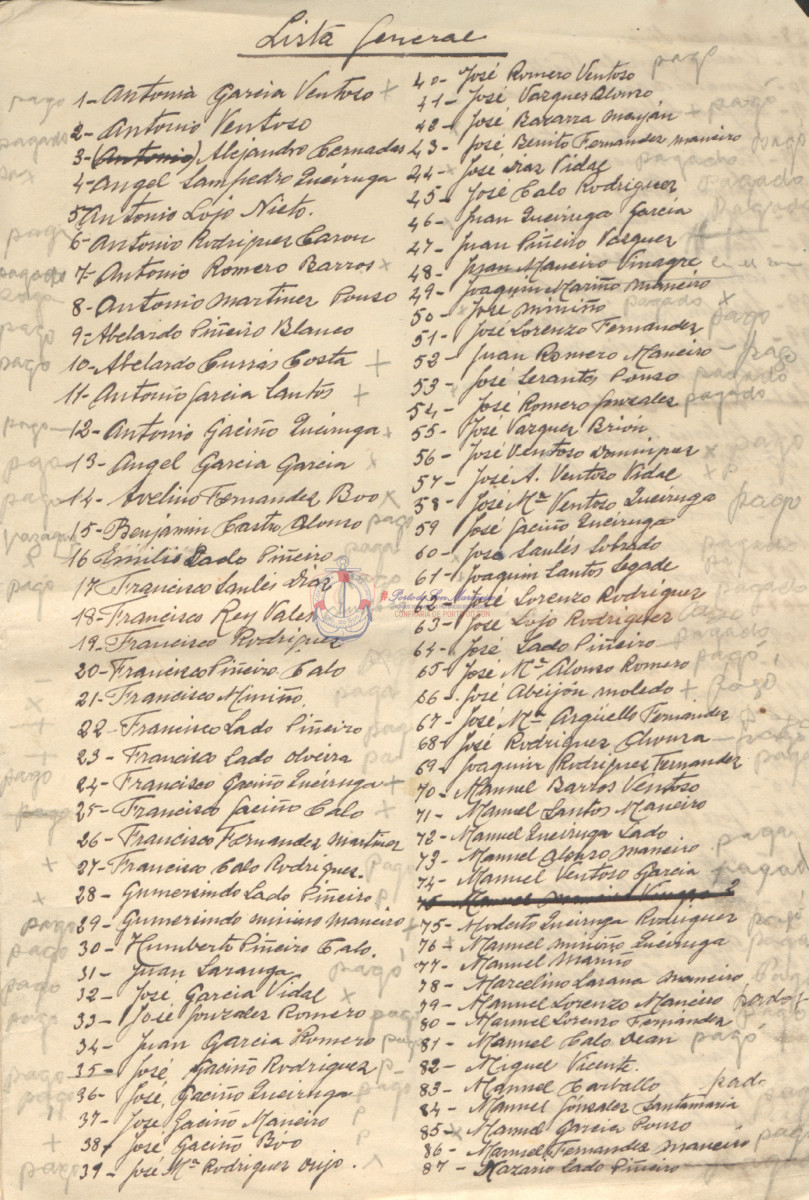 Lista General
1- Antonia Garcia Ventoso +
2- Antonio Ventoso
3- (Antonio) Alejandro Cernadas
4- Angel Sampedro Queiruga
5 Antonio Lojo Nieto.
6- Antonio Rodriguez Carou
7- Antonio Romero Barros x
8- Antonio Martinez Pouso
9- Abelardo Piñeiro Blanco
10- Abelardo Currás Costa +
11- Antonio Garcia Santos +
12- Antonio Gaciño Queiruga x
13- Angel Garcia Garcia
14- Avelino Fernandez Boo x
15- Benjamin Castro Alonso pago
16 Emilio Lado Piñeiro
17 Francisco Saulés Diaz
18- Francisco Rey Vales
19- Francisco Rodriguez
20- Francisco Piñeiro Calo
21- Francisco Miniño.
22- Francisco Lado Piñeiro
23- Francisco Lado Olveira
24- Francisco Gaciño Queiruga +
25- Francisco Gaciño Calo x
26- Francisco Fernandez Martinez
27- Francisco Calo Rodriguez.
28- Gumersindo Lado Piñeiro
29- Gumersindo Miniano Maneiro +
30- Humberto Piñeiro Calo.
31- Juan Saranga
32- José Garcia Vidal x
33- José Gonzalez Romero
34- Juan Garcia Romero
35- José Gaciño Rodriguez
36- José, Gaciño Queiruga
37- José Gaciño Maneiro
38, José Gaciño Boo
39- José Mª Rodriguez Orijo.
40- José Romero Ventoso pagó
41- José Vazquez Alonso
42- José Bazarra Mayán + pagó
43- José Benito Fernandez Maneiro
44- José Diaz Vidal
45- José Calo Rodriguez
46- Juan Queiruga Garcia
47- Juan Piñeiro Vazquez
48- Juan Maneiro Vinagre
49- Joaquin Mariño Maneiro
50- Jose Miniño pagado
51- José Lorenzo Fernandez
52- Juan Romero Maneiro - pagó
53- José Serantos Pouso
54- José Romero Gonzalez pagado
55- José Vazquez Brión
56- José Ventoso Dominguez x
57- José A. Ventoso Vidal + p
58- José Mª Ventoso Queiruga pagó
59 José Gaciño Queiruga
60- José Saulés Sobrado
61- Joaquin Santos Segade
62- José Lorenzo Rodriguez
63- José Lojo Rodriguez
64- José Lado Piñeiro
65- José Mª Alonso Romero
66- José Abeijón Moledo + pagó
67- José Mª Argüello Fernandez
68- José Rodriguez Choura
69- Joaquin Rodriguez Fernandez
70- Manuel Barros Ventoso
71- Manuel Santos Maneiro
72- Manuel Queiruga Lado
73- Manuel Alonso Maneiro
74- Manuel Ventoso Garcia
75- Modesto Queiruga Rodriguez
76- Manuel Miniño Queiruga
77- Manuel Mariño
78- Marcelino Sarana Maneiro
79- Manuel Lorenzo Maneiro
80- Manuel Lorenzo Fernández
81- Manuel Calo Dean pagó
82- Miguel Vicente.
83- Manuel Carballo
84- Manuel Gónzalez Santamaria
85- Manuel Garcia Pouso
86- Manuel Fernandez Maneiro
87- Nazario Lado Piñeiro